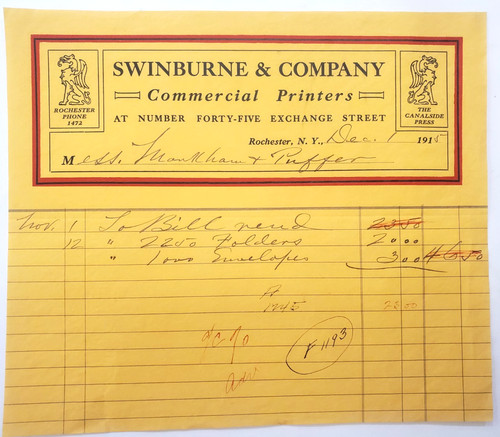 SWINBURNE & COMPANY
Commercial Printers
AT NUMBER FORTY-FIVE EXCHANGE STREET
ROCHESTER
PHONE
1472
THE
CANALSIDE
PRESS
Rochester, N. Y., Dec. 1 1915
Mess. Markham & Puffer
Nov. 1 To Bill rend 23 50
12 " 2250 Folders 20 00
" 1000 Envelopes 3 00 46 50
1745 23 00
F 1193